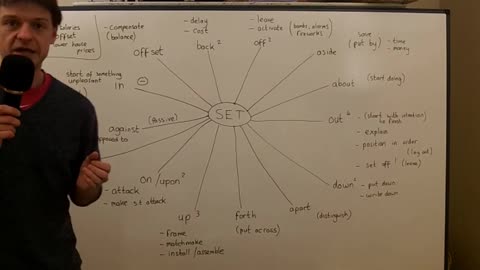 salaries
offset
lower house
prices
- compensate
(balance)
offset
- delay
- cost
back 2
- leave
- activate (bombs, alarms
fireworks)
off 3
save
(put by)
- time
- money
aside
start of something
unpleasant
in
about
(start doing)
SET
against
(passive)
opposed to
out 4
(start with intention)
to finish
- explain
- position in order
(lay out)
- set off 1 (leave)
on / upon 2
- attack
- make s.t attack
down 2
- put down
- write down
up 3
- frame
- matchmake
- install / assemble
forth
(put across)
apart
(distinguish)